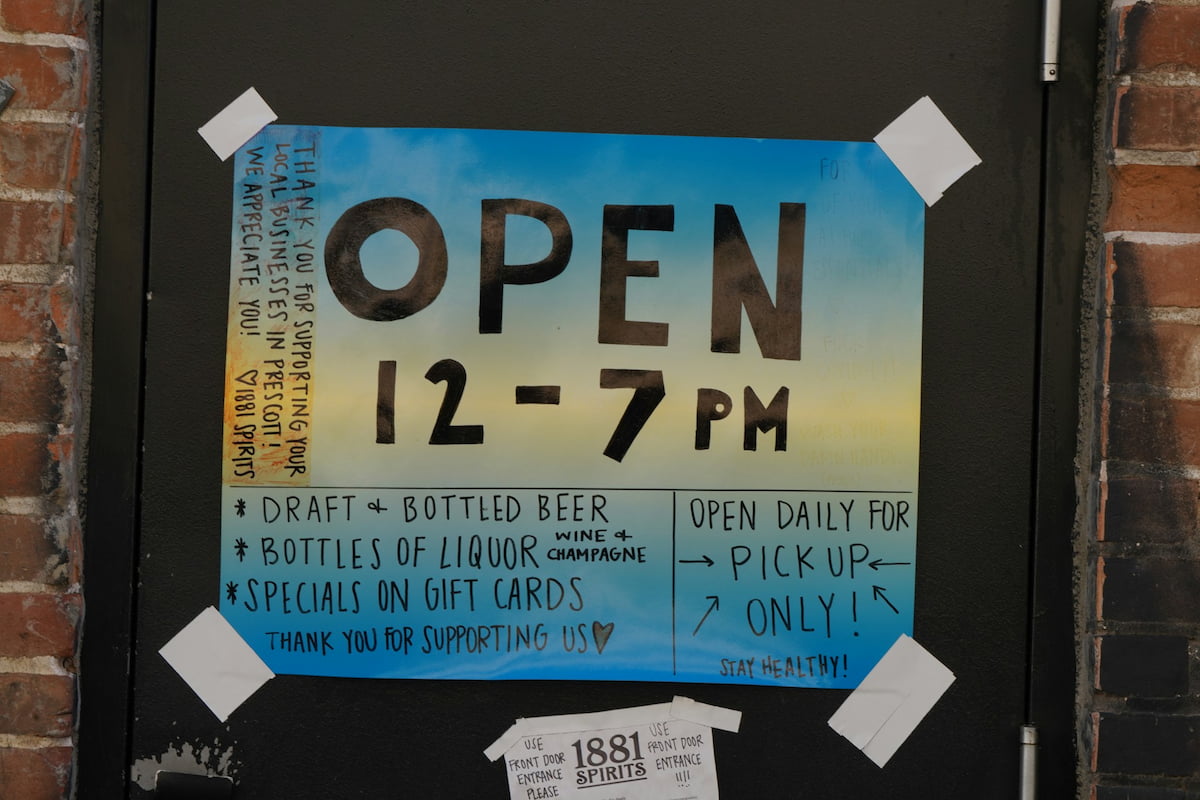 THANK YOU FOR SUPPORTING YOUR
LOCAL BUSINESSES IN PRESCOTT!
WE APPRECIATE YOU! ♡1881 SPIRITS
OPEN
12-7 PM
* DRAFT & BOTTLED BEER
* BOTTLES OF LIQUOR WINE &
CHAMPAGNE
* SPECIALS ON GIFT CARDS
THANK YOU FOR SUPPORTING US♥
OPEN DAILY FOR
→ PICK UP ←
↗ ONLY! ↖
STAY HEALTHY!
USE
FRONT DOOR
ENTRANCE
PLEASE
1881
SPIRITS
USE
FRONT DOOR
ENTRANCE
!!!!